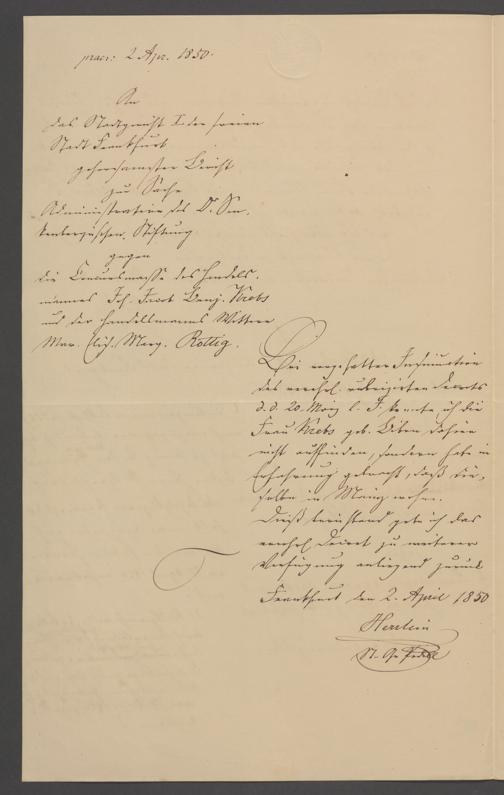 praes: 2 Apr. 1850.
An
das Stadtgericht I. der freien
Stadt Frankfurt
gehorsamster Bericht
zur Sache
Administration der Dr. Sen,
kenbergischen Stiftung
gegen
die Concursmasse des Handels,
mannes Joh. Jacob Benj. Krebs
und der Handelsmanns Wittwe
Mar. Elis. Marg. Rottig.
Bei Insinuation
des verehrl. rubrizirten Decrets
d. d. 20. März l. J. konnte ich die
Frau Krebs geb. dahier
nicht auffinden, sondern habe in
Erfahrung gebracht, daß die,
selbe in Mainz wohne.
gebe ich das
verehrl. Decret zu weiterer
Verfügung anliegend zurück
Frankfurt den 2. April 1850
Herrlein
St. G.